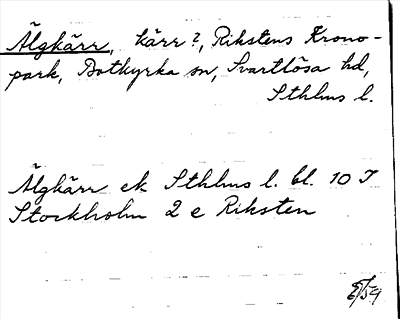 Älgkärr, kärr?, Rikstens Krono-
park, Botkyrka sn, Svartlösa hd,
Sthlms l.
Älgkärr ek Sthlms l. bl. 10 I
Stockholm 2 e Riksten